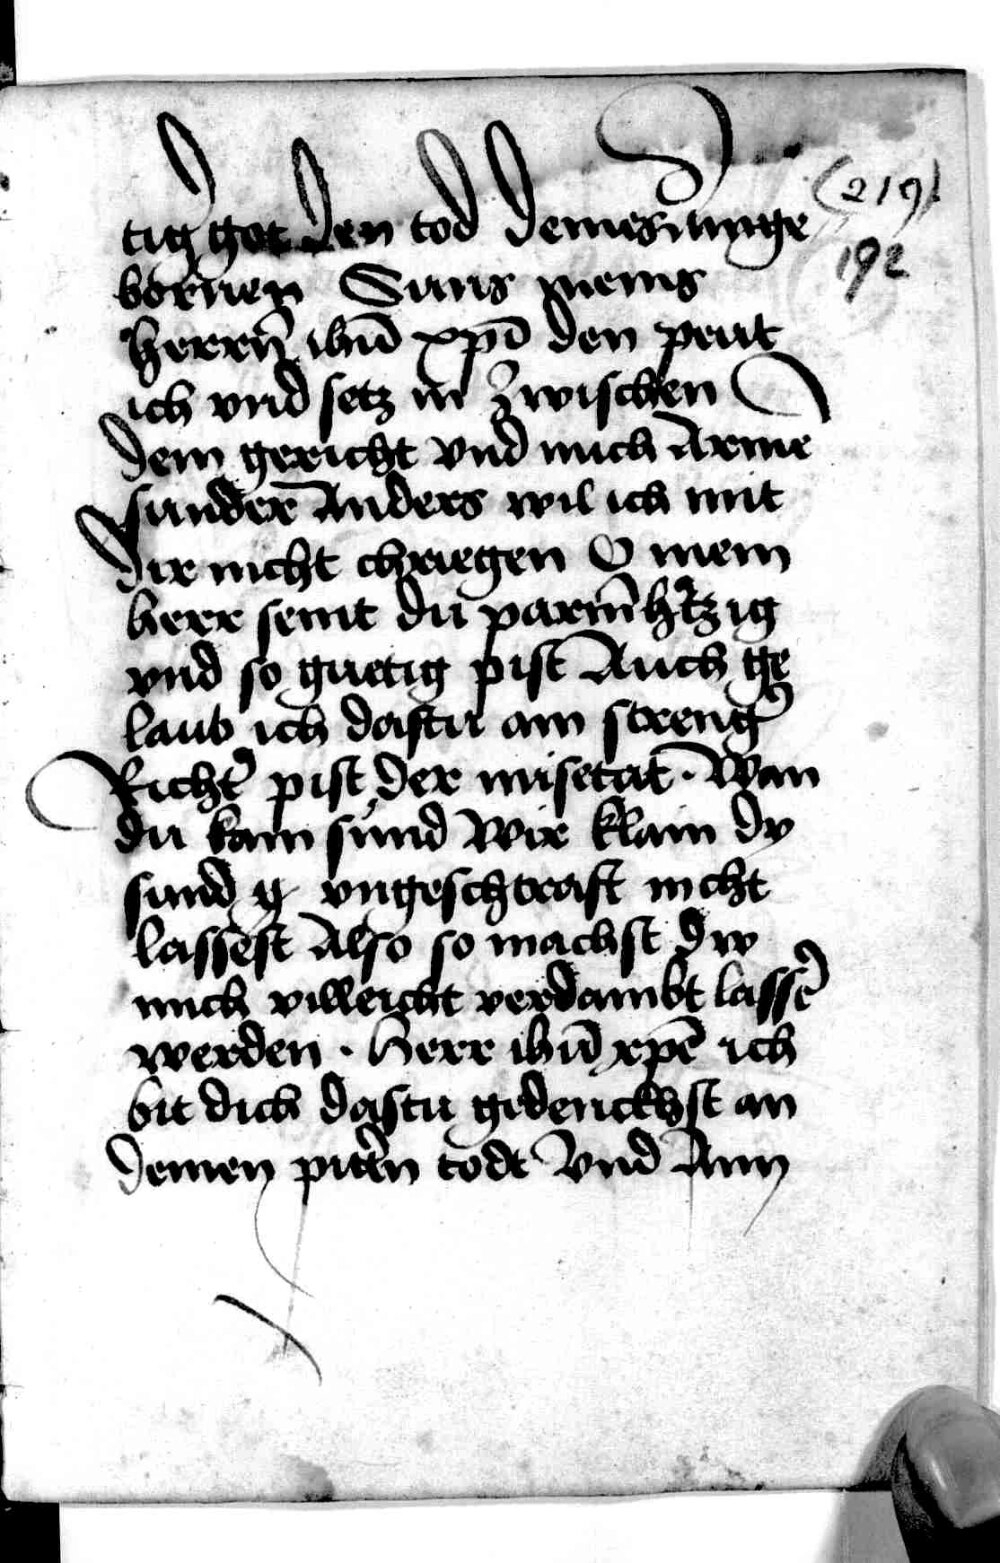 (219)
192
tig˜ got den tod deines ainge
bornen Suns meins
herrn̄ ihū xp̄i den peut
ich vnd setz in zwischen
dem gericht vnd mich Arme
sunder Anders wil ich mit
dir nicht chriegen O mein
herr seint du parmh̄tzig
vnd so guetig pist Auch ge
laub ich dastu ain streng˜
Richt˜ pist der misetat · Wan
du kain sünd wie klain dy
sund ungeschtraft nicht
lassest Also so machst dw
mich villeicht verdambt lass˜
werden · herr ihū xp̄e ich
bit dich dastu gedenckhst an
deinen pittn̄ todt Vnd Ann